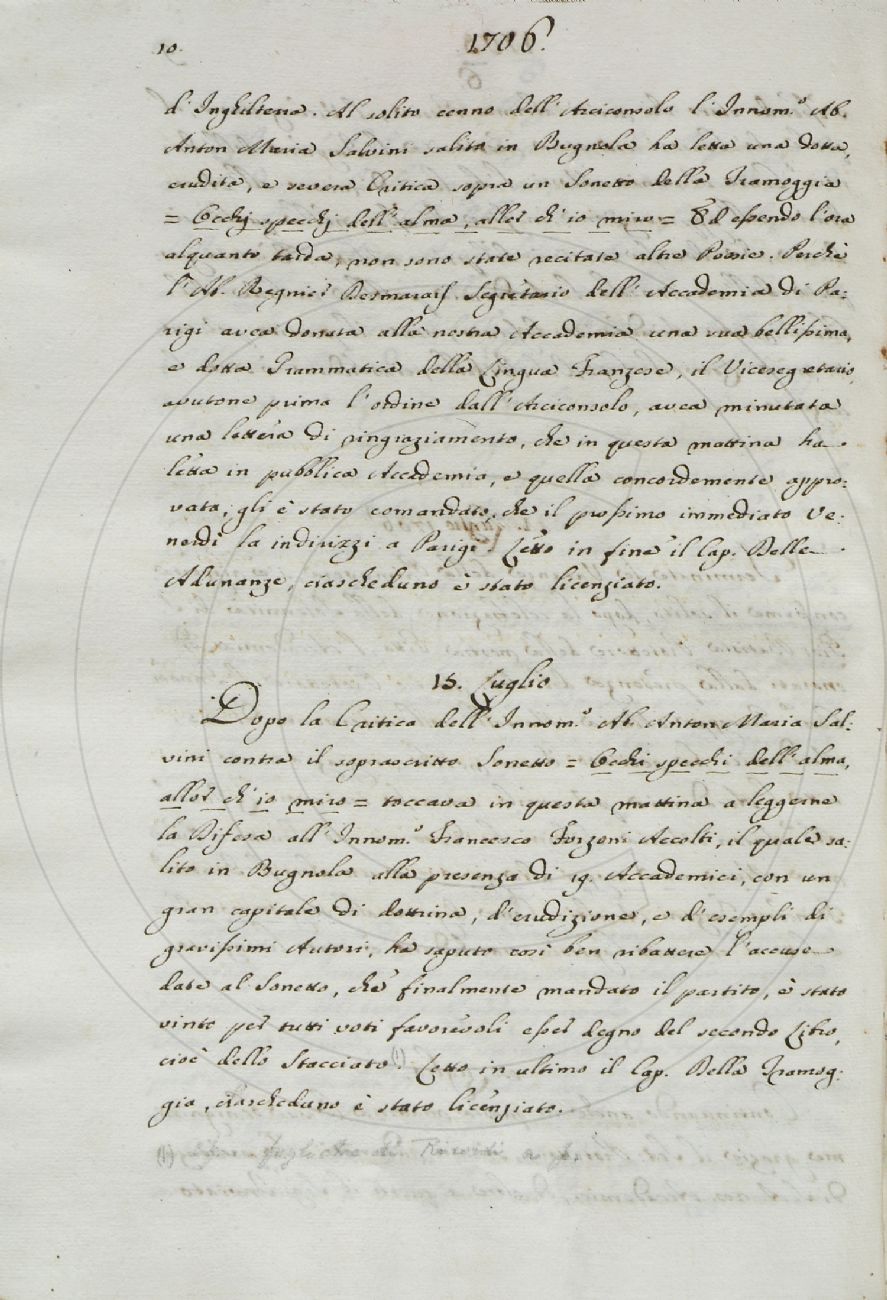 10.
1706.
d'Inghilterra. Al solito cenno dell'Arciconsolo l'Innom.º Ab.
Anton Maria Salvini salito in Bugnola ha letta una dotta,
erudita, e severa Critica sopra un Sonetto della Tramoggia
= Occhj specchj dell'alma, allor ch'io miro = Ed essendo l'ora
alquanto tarda, non sono state recitate altre Poesie. Perchè
l'Ab. Regnier Desmarais Segretario dell'Accademia di Pa:
rigi avea donata alla nostra Accademia una sua bellissima,
e dotta Grammatica della Lingua Franzese, il Vicesegretario,
avutone prima l'ordine dall'Arciconsolo, avea minutata
una lettera di ringraziamento, che in questa mattina ha
letta in pubblica Accademia, e quella concordemente appro:
vata, gli è stato comandato, che il prossimo immediato Ve:
nerdì la indirizzi a Parigi. Letto in fine il Cap. Delle
Adunanze, ciascheduno è stato licenziato.
15. Luglio
Dopo la Critica dell'Innom.º Ab. Anton Maria Sal:
vini contra il soprascritto Sonetto = Occhi specchi dell'alma,
allor ch'io miro = toccava in questa mattina a leggerne
la Difesa all'Innom.º Francesco Forzoni Accolti, il quale sa:
lito in Bugnola alla presenza di 19. Accademici, con un
gran capitale di dottrina, d'erudizione, e d'esempli di
gravissimi Autori, ha saputo così ben ribattere l'accuse
date al Sonetto, che finalmente mandato il partito, è stato
vinto per tutti voti favorevoli esser degno del secondo Libro,
cioè dello Stacciato. (1) Letto in ultimo il Cap. Della Tramog:
gia, ciascheduno è stato licenziato.
(1)